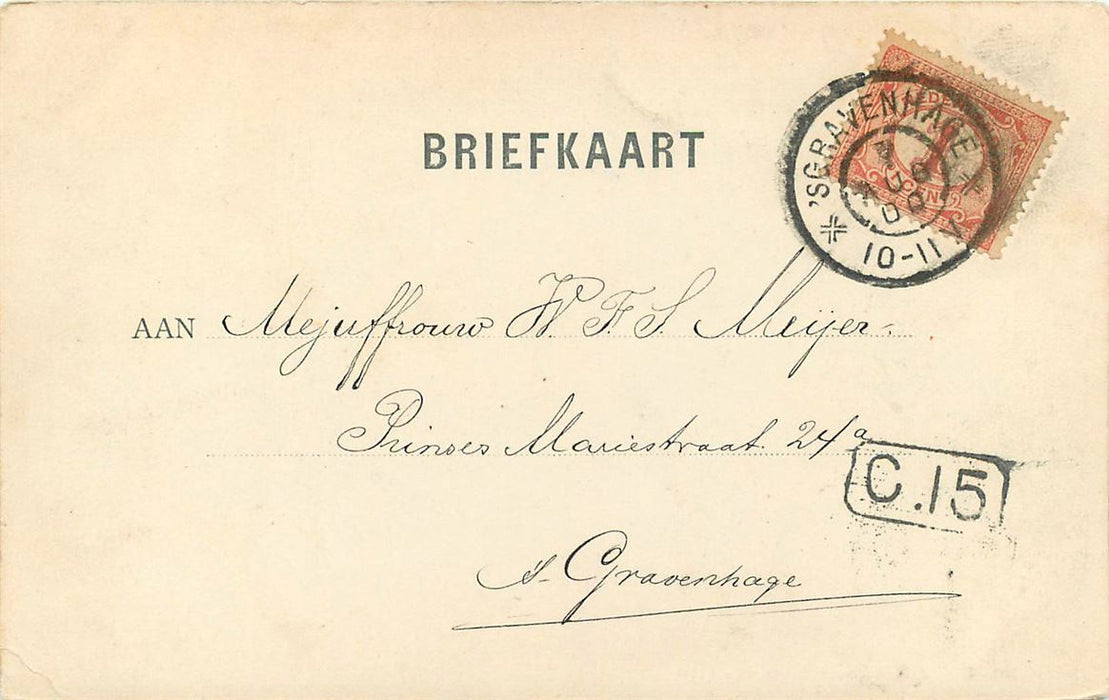 BRIEFKAART
'SGRAVENHAGE
10-11V
AAN Mejuffrouw W. F. S. Meijer.
Prinses Mariestraat 24a
C.15
's-Gravenhage